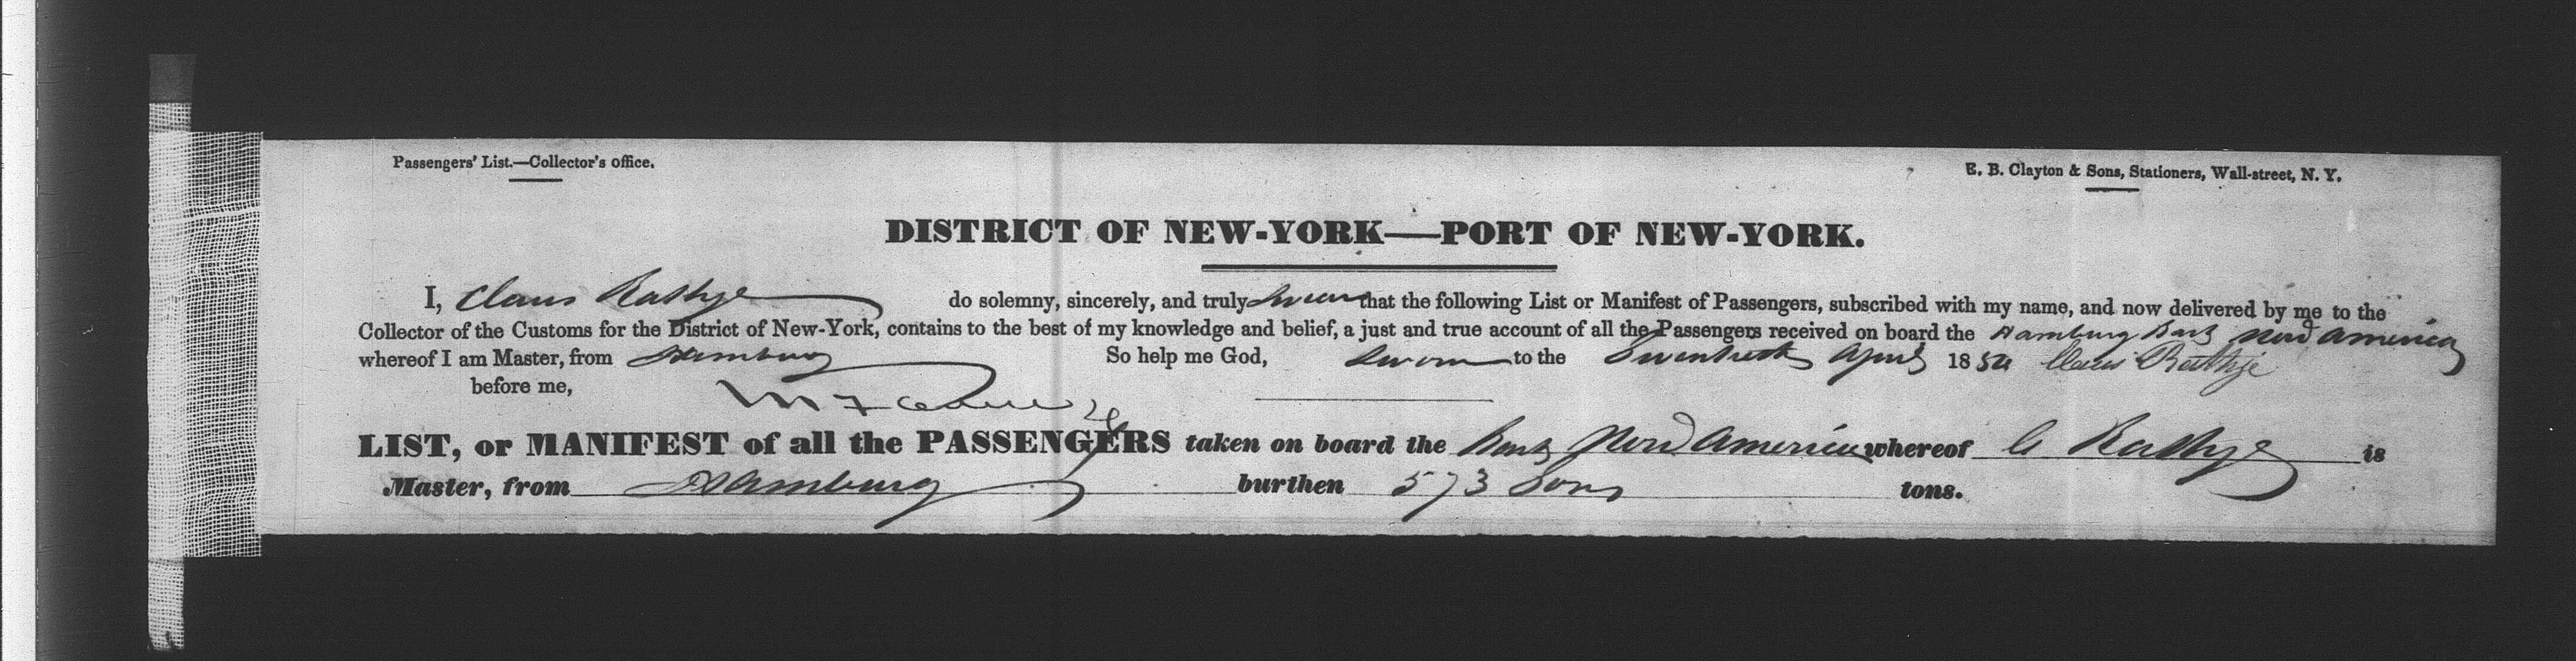 Passengers' List.—Collector's office.
E. B. Clayton & Sons, Stationers, Wall-street, N. Y.
DISTRICT OF NEW-YORK—PORT OF NEW-YORK.
I, Claus Rathje do solemny, sincerely, and truly swear that the following List or Manifest of Passengers, subscribed with my name, and now delivered by me to the
Collector of the Customs for the District of New-York, contains to the best of my knowledge and belief, a just and true account of all the Passengers received on board the Hamburg Bark Nord America
whereof I am Master, from Hamburg So help me God, Sworn to the Twentieth April 185 Claus Rathje
before me,
LIST, or MANIFEST of all the PASSENGERS taken on board the Bark Nord America whereof C Rathje is
Master, from Hamburg burthen 573 Tons tons.